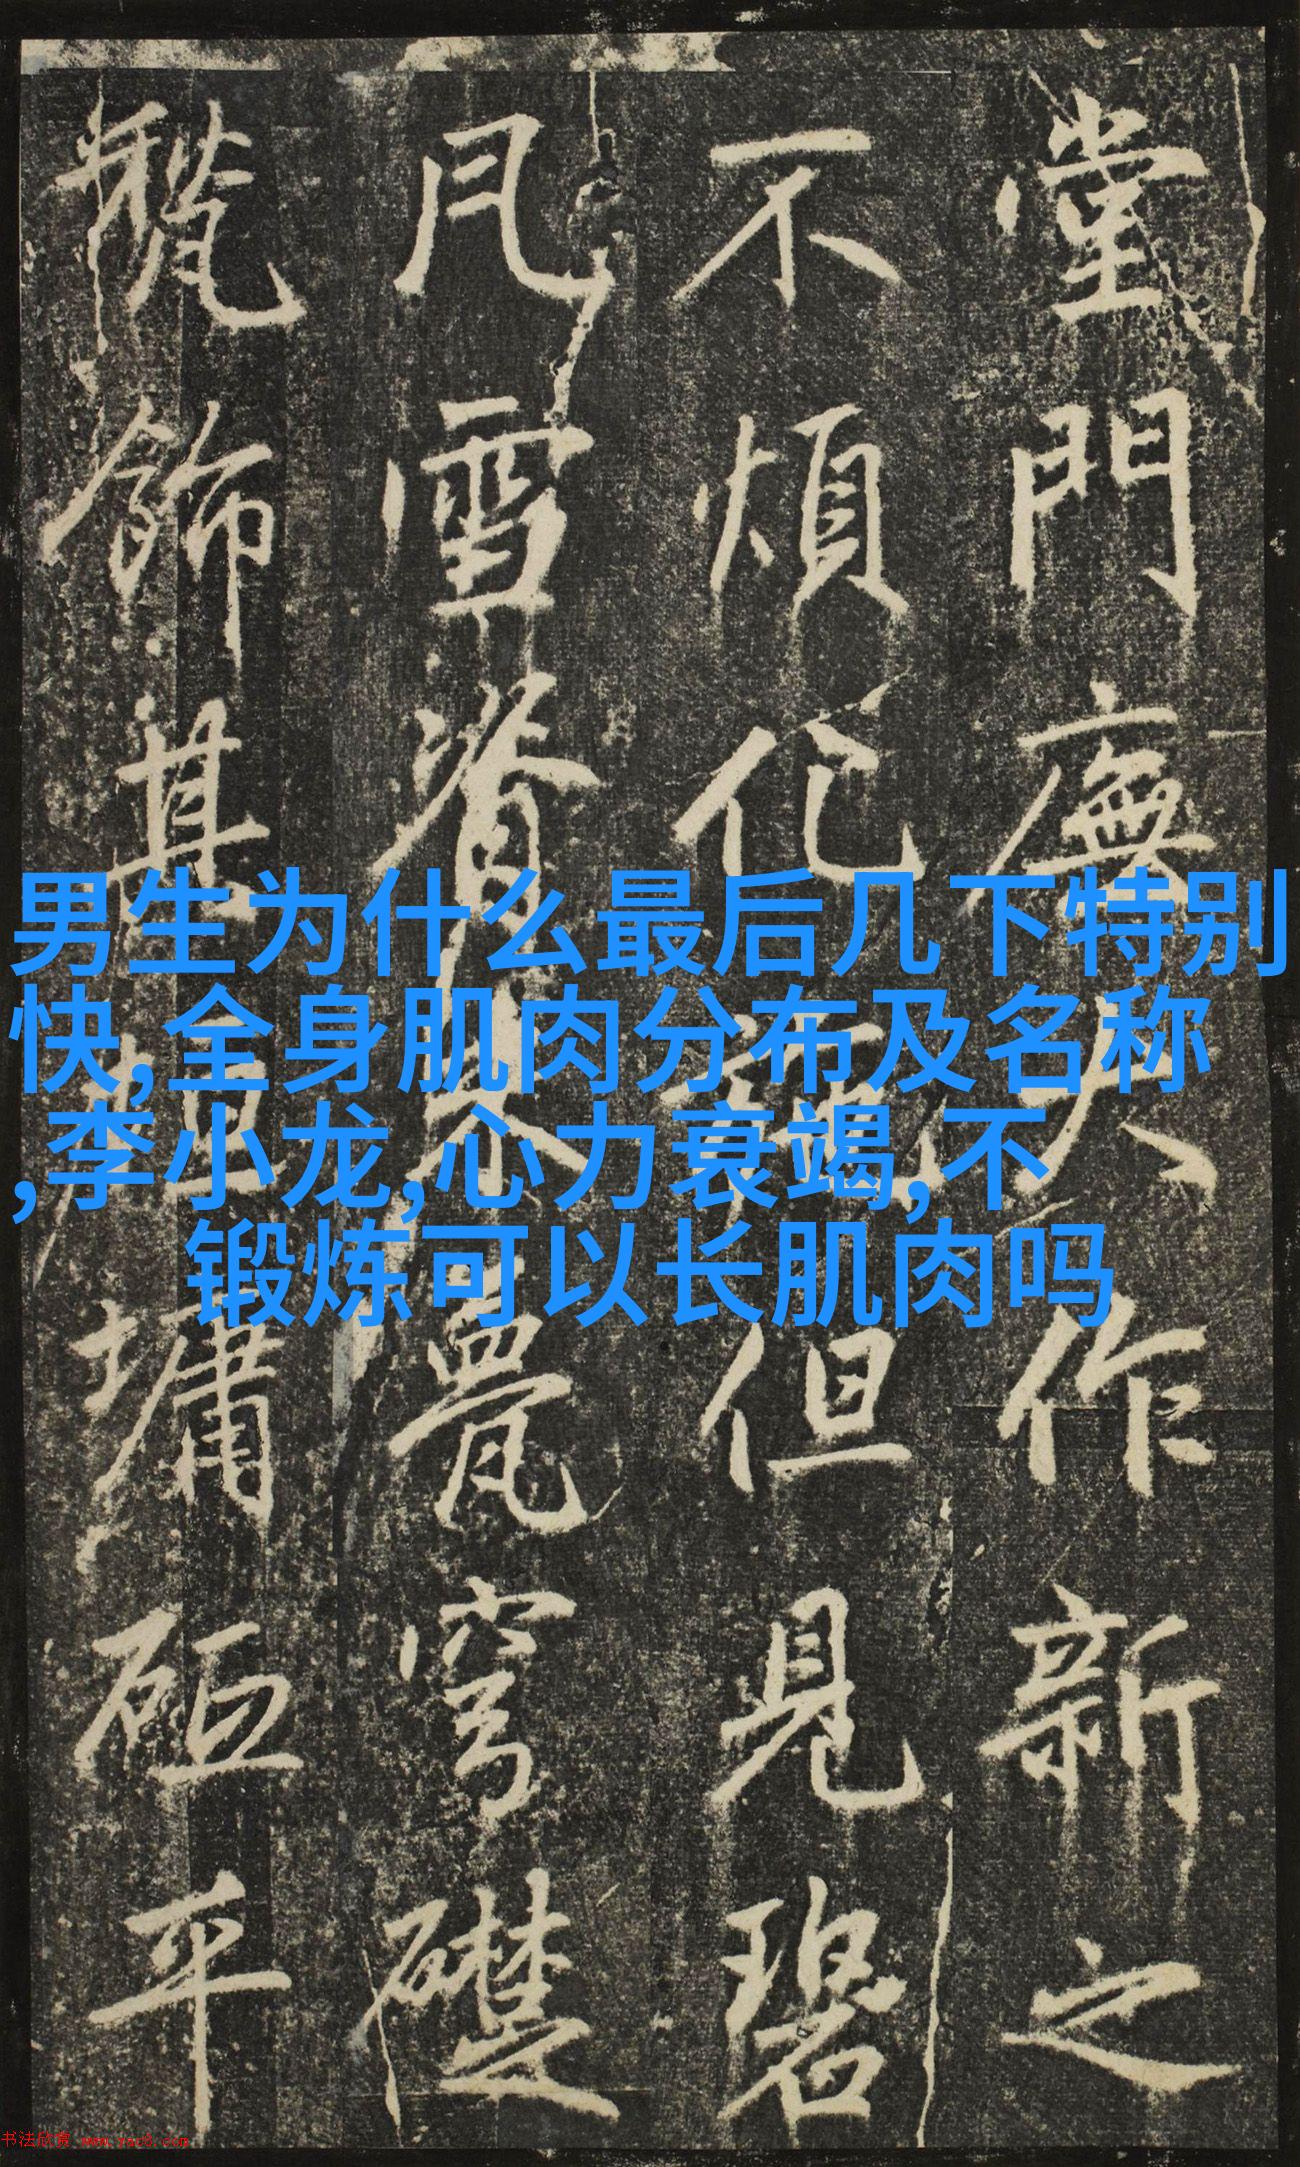 堂門廡大作新之
不煩化
但見碧
風雪資
甍穹礎
飾甚
墉砠平
男生为什么最后几下特别
快,全身肌肉分布及名称
,李小龙,心力衰竭,不
锻炼可以长肌肉吗
书法欣赏 www.yac8.com